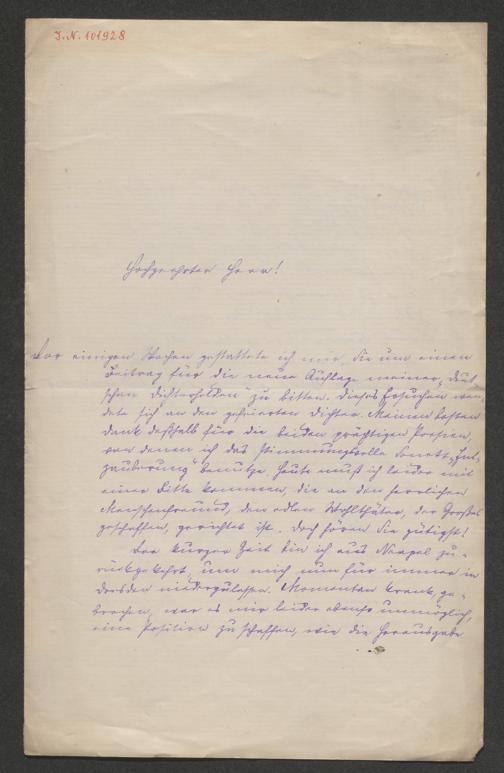 I. N. 101928
Hochgeehrter Herr!
Vor einigen Wochen gestattete ich mir, Sie um einen
Beitrag für die neue Auflage meiner „Deut
schen Dichterhelden“ zu bitten. Dieses Ersuchen wen
dete sich an den gefeierten Dichter. Meinen besten
Dank deßhalb für die beiden prächtigen Poesien,
von denen ich das stimmungsvolle Sonett „Ent
zauberung“ benutze. Heute muß ich leider mit
einer Bitte kommen, die an den herrlichen
Menschenfreund, den edlen Wohlthäter, der Großes
geschaffen, gerichtet ist. Doch hören Sie gütigst!
Vor kurzer Zeit bin ich aus Neapel zu-
rückgekehrt, um mich nun für immer in
Dresden niederzulassen. Momentan krank, ge-
brochen, war es mir leider ebenso unmöglich,
eine Position zu schaffen, wie die Herausgabe